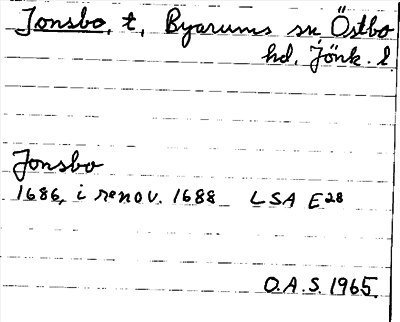 Jonsbo, t, Byarums sn, Östbo
hd, Jönk. l.
Jonsbo
1686, i renov. 1688 LSA E28
O.A.S. 1965.